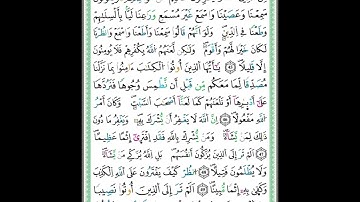 سَمِعْنَا وَعَصَيْنَا وَٱسْمَعْ غَيْرَ مُسْمَعٍ وَرَٰعِنَا لَيًّۢا بِأَلْسِنَتِهِمْ
وَطَعْنًا فِى ٱلدِّينِ وَلَوْ أَنَّهُمْ قَالُوا۟ سَمِعْنَا وَأَطَعْنَا وَٱسْمَعْ وَٱنظُرْنَا
لَكَانَ خَيْرًا لَّهُمْ وَأَقْوَمَ وَلَٰكِن لَّعَنَهُمُ ٱللَّهُ بِكُفْرِهِمْ فَلَا يُؤْمِنُونَ
إِلَّا قَلِيلًا ٤٦ يَٰٓأَيُّهَا ٱلَّذِينَ أُوتُوا۟ ٱلْكِتَٰبَ ءَامِنُوا۟ بِمَا نَزَّلْنَا
مُصَدِّقًا لِّمَا مَعَكُم مِّن قَبْلِ أَن نَّطْمِسَ وُجُوهًا فَنَرُدَّهَا
عَلَىٰٓ أَدْبَارِهَآ أَوْ نَلْعَنَهُمْ كَمَا لَعَنَّآ أَصْحَٰبَ ٱلسَّبْتِ وَكَانَ أَمْرُ
ٱللَّهِ مَفْعُولًا ٤٧ إِنَّ ٱللَّهَ لَا يَغْفِرُ أَن يُشْرَكَ بِهِۦ وَيَغْفِرُ مَا دُونَ
ذَٰلِكَ لِمَن يَشَآءُ وَمَن يُشْرِكْ بِٱللَّهِ فَقَدِ ٱفْتَرَىٰٓ إِثْمًا عَظِيمًا
٤٨ أَلَمْ تَرَ إِلَى ٱلَّذِينَ يُزَكُّونَ أَنفُسَهُم بَلِ ٱللَّهُ يُزَكِّى مَن يَشَآءُ
وَلَا يُظْلَمُونَ فَتِيلًا ٤٩ ٱنظُرْ كَيْفَ يَفْتَرُونَ عَلَى ٱللَّهِ ٱلْكَذِبَ
وَكَفَىٰ بِهِۦٓ إِثْمًا مُّبِينًا ٥٠ أَلَمْ تَرَ إِلَى ٱلَّذِينَ أُوتُوا۟ نَصِيبًا